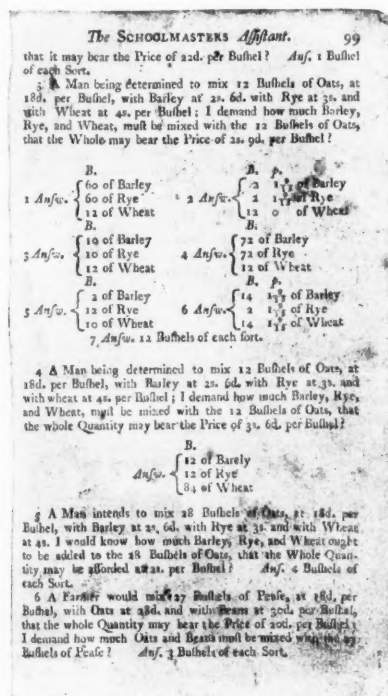 The SCHOOLMASTERS Assistant. 99
that it may bear the Price of 22d. per Bushel? Ans. 1 Bushel
of each Sort.
3 A Man being determined to mix 12 Bushels of Oats, at
18d. per Bushel, with Barley at 2s. 6d. with Rye at 3s. and
with Wheat at 4s. per Bushel; I demand how much Barley,
Rye, and Wheat, must be mixed with the 12 Bushels of Oats,
that the Whole may bear the Price of 2s. 9d. per Bushel?
B.
1 Answ. { 60 of Barley
60 of Rye
12 of Wheat
B. p.
2 Answ. { 2 of Barley
2 of Rye
12 0 of Wheat
B.
3 Answ. { 10 of Barley
10 of Rye
12 of Wheat
B.
4 Answ. { 72 of Barley
72 of Rye
12 of Wheat
B.
5 Answ. { 2 of Barley
12 of Rye
10 of Wheat
B. p.
6 Answ. { 14 of Barley
2 of Rye
14 of Wheat
7 Answ. 12 Bushels of each sort.
4 A Man being determined to mix 12 Bushels of Oats, at
18d. per Bushel, with Barley at 2s. 6d. with Rye at 3s. and
with wheat at 4s. per Bushel; I demand how much Barley, Rye,
and Wheat, must be mixed with the 12 Bushels of Oats, that
the whole Quantity may bear the Price of 3s. 6d. per Bushel?
B.
Answ. { 12 of Barely
12 of Rye
84 of Wheat
5 A Man intends to mix 28 Bushels of Oats, at 18d. per
Bushel, with Barley at 2s. 6d. with Rye at 3s. and with Wheat
at 4s. I would know how much Barley, Rye, and Wheat ought
to be added to the 28 Bushels of Oats, that the Whole Quan-
tity may be afforded at 2s. per Bushel? Ans. 4 Bushels of
each Sort.
6 A Farmer would mix 27 Bushels of Pease, at 18d. per
Bushel, with Oats at 28d. and with Beans at 30d. per Bushel,
that the whole Quantity may bear the Price of 20d. per Bushel;
I demand how much Oats and Beans must be mixed with the
Bushels of Pease? Ans. 3 Bushels of each Sort.